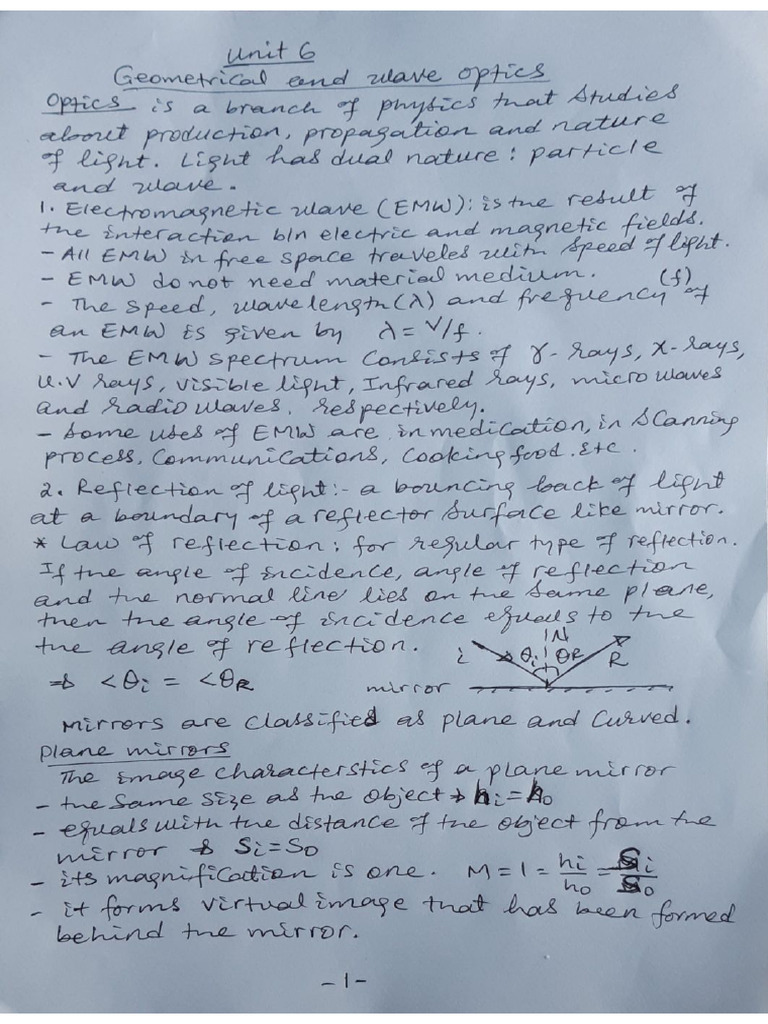 Unit 6
Geometrical and wave optics
Optics is a branch of physics that studies
about production, propagation and nature
of light. Light has dual nature : particle
and wave.
1. Electromagnetic wave (EMW): is the result of
the interaction b/n electric and magnetic fields.
- All EMW in free space traveles with speed of light.
- EMW do not need material medium.
- The speed, wavelength (λ) and frequency (f) of
an EMW is given by λ = v/f.
- The EMW spectrum consists of γ-rays, x-rays,
U.V rays, visible light, Infrared rays, micro waves
and radio waves. respectively.
- Some uses of EMW are in medication, in scanning
process, communications, cooking food. etc.
2. Reflection of light:- a bouncing back of light
at a boundary of a reflector surface like mirror.
* Law of reflection: for regular type of reflection.
If the angle of incidence, angle of reflection
and the normal line lies on the same plane,
then the angle of incidence equals to the
the angle of reflection.
N
i θi θR R
⇒ <θi = <θR
mirror
Mirrors are classified as plane and curved.
Plane mirrors
The image characterstics of a plane mirror
- the same size as the object → hi = ho
- equals with the distance of the object from the
mirror ⇒ Si = So
- its magnification is one. M = 1 = hi/ho = Si/So
- it forms virtual image that has been formed
behind the mirror.
-1-